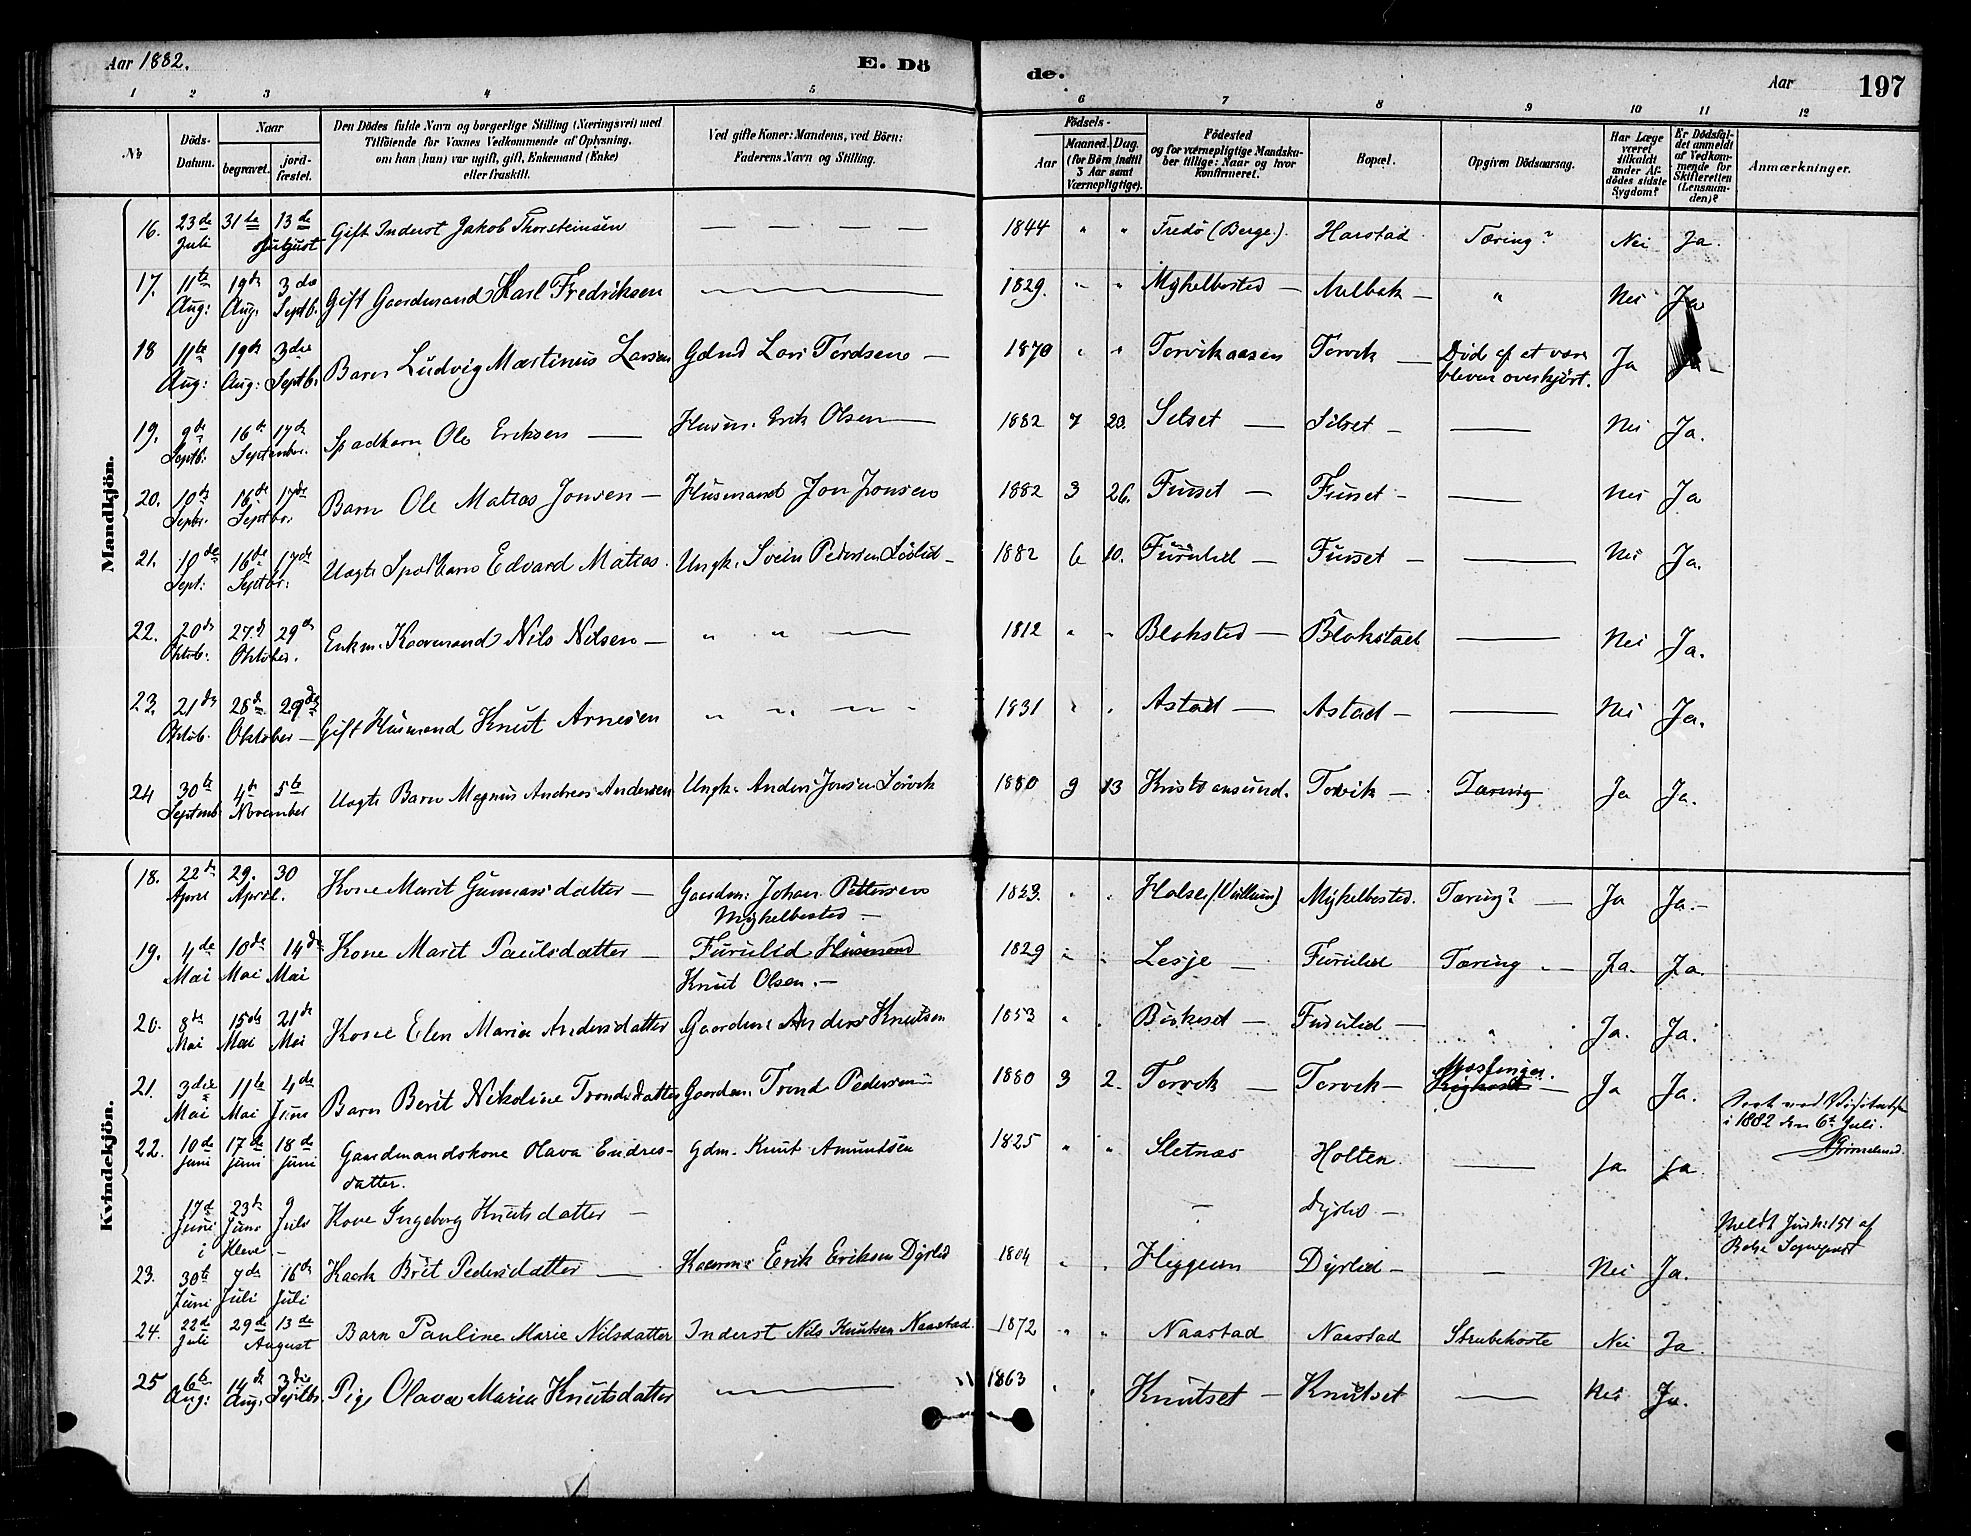 Aar 1882.
E. Dö
de.
Aar
197
1 2 3 4 5 6 7 8 9 10 11 12
No
Döds-Datum.
Naar
begravet.
jordfæstet.
Den Dödes fulde Navn og borgerlige Stilling (Næringsvei) med
Tilföiende for Voxnes Vedkommende af Oplysning,
om han (hun) var ugift, gift, Enkemand (Enke)
eller fraskilt.
Ved gifte Koner: Mandens, ved Börn:
Faderens Navn og Stilling.
Födsels-
Aar
Maaned. Dag.
(for Börn indtil
3 Aar samt
Værnepligtige).
Födested
og for værnepligtige Mandskaber tillige: Naar og hvor
Konfirmeret.
Bopæl.
Opgiven Dödsaarsag.
Har Læge
været
tilkaldt
under Afdödes sidste
Sygdom?
Er Dödsfaldet anmeldt
af Vedkommende for
Skifteretten
(Lensmanden)?
Anmærkninger.
Mandkjön.
16. 23de Juli 31te 13de August Gift Inderst Jakob Thorsteinsen — — — — 1844 " " Fredö (Berge). Harstad Tæring? Nei Ja.
17. 11te Aug: 19de Aug. 3die Septb. Gift Gaardmand Karl Fredriksen — 1829. " " Myhelbosted — Melbak — " Nei Ja
18 11te Aug: 19de Aug: 3die Septb. Barn Ludvig Martinus Larsen Gdmd Lars Tordsen — 1870 " " Torvikaasen Torvik — Död af at være
bleven overkjört. Ja Ja
19. 9de Septb: 16de 17de September. Spædbarn Ole Eriksen — Husm. Erik Olsen — 1882 7 20. Silset — Silset — — Nei Ja.
20. 10de Septbr. 16de 17de Septbr. Barn Ole Matias Jonsen — Husmand Jon Jonsen 1882 3 26. Furset — Furset — — Nei Ja
21. 10de Sept: 16de 17de Septbr: Uægte Spædbarn Edvard Matias. Ungk. Svein Pedersen 1882 6 10. Furulid — Furset — — Nei Ja.
22. 20de Oktob. 27de 29de Oktober. Enkm. Kaarmand Nils Nilsen — " " — 1812 " " Blaksted — Blakstad — Nei Ja.
23. 21de Oktob. 28de 29de Oktober — Gift Husmand Knut Arnesen " " " " 1831 " " Astad — Astad — — Nei Ja.
24 30te Septemb. 4de 5te November Uægte Barn Magnus Andreas Andersen Ungk. Anders Jonsen 1880 9 13 Kristiansund. Torvik — Tæring Ja Ja.
Kvindekjön.
18. 22de April 29. 30 April. Kone Marit Gunnarsdatter — Gaardm: Johan Pettersen
Myhelbosted — 1853. " " Halse Myhelbosted. Tæring? — Ja Ja.—
19. 4de Mai 10de Mai 14de Mai Kone Marit Paulsdatter — Furulid Husmand
Knut Olsen. — 1829 " " Lesje — Furulid Tæring — Ja. Ja.
20. 8de Mai 15de Mai 21de Mai Kone Elen Maria Andersdatter Gaardm: Anders Knutsen 1853 " " Birkeset — Furulid — " Ja. Ja.
21. 3die Mai 11te Mai 4de Juni Barn Berit Nikoline Trondsdatter Gaardm. Trond Pedersen 1880 3 2. Torvik — Torvik — Mæslinger.
Kighoste — Ja Ja.
i 1882 den 6te Juli.
22. 10de Juni 17de juni 18de juni Gaardmandskone Olava Endres-
datter. Gdm. Knut Amundsen 1825 " " Sletnæs Holten. — Ja Ja.
17de Juni i Kleve 23de Juni 9 Juli Kone Ingeborg Knutsdatter — — Dyrlid — Meldt af
Sognepræst
23. 30te Juni 7de Juli 16de Juli Kaark. Brit Pedersdatter — Kaarm: Erik Eriksen Dyrlid 1804 " " Heggeim Dyrlid — — Nei Ja.
24. 22de Juli 29de 13de August Barn Pauline Marie Nilsdatter Inderst Nils Knutsen Naastad. 1872 " " Naastad Naastad Strubehoste Nei Ja.
25 6te Aug: 14de Aug. 3die Septbr. Pige Olava Maria Knutsdatter — 1863 " " Knutset — Knutset — Nei Ja.